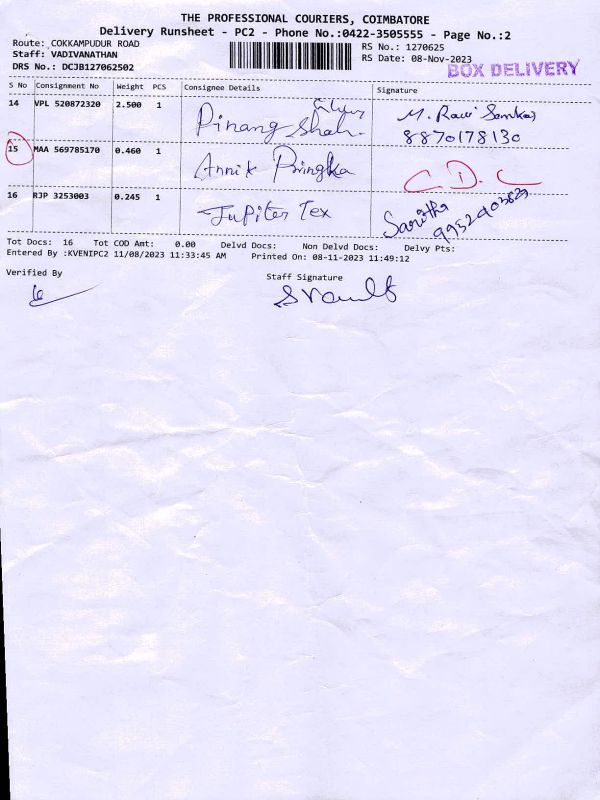 THE PROFESSIONAL COURIERS, COIMBATORE
Delivery Runsheet - PC2 - Phone No.:0422-3505555 - Page No.:2
Route: COKKAMPUDUR ROAD
Staff: VADIVANATHAN
DRS No.: DCJB127062502
RS No.: 1270625
RS Date: 08-Nov-2023
BOX DELIVERY
S No Consignment No Weight PCS Consignee Details Signature
14 VPL 520872320 2.500 1 Pinang Shah. M. Ravi Sankar
8870178130
15 MAA 569785170 0.460 1 Annik Pringka C.D.C
16 RJP 3253003 0.245 1 Jupiter Tex Saritha
Tot Docs: 16 Tot COD Amt: 0.00 Delvd Docs: Non Delvd Docs: Delvy Pts:
Entered By :KVENIPC2 11/08/2023 11:33:45 AM Printed On: 08-11-2023 11:49:12
Verified By Staff Signature